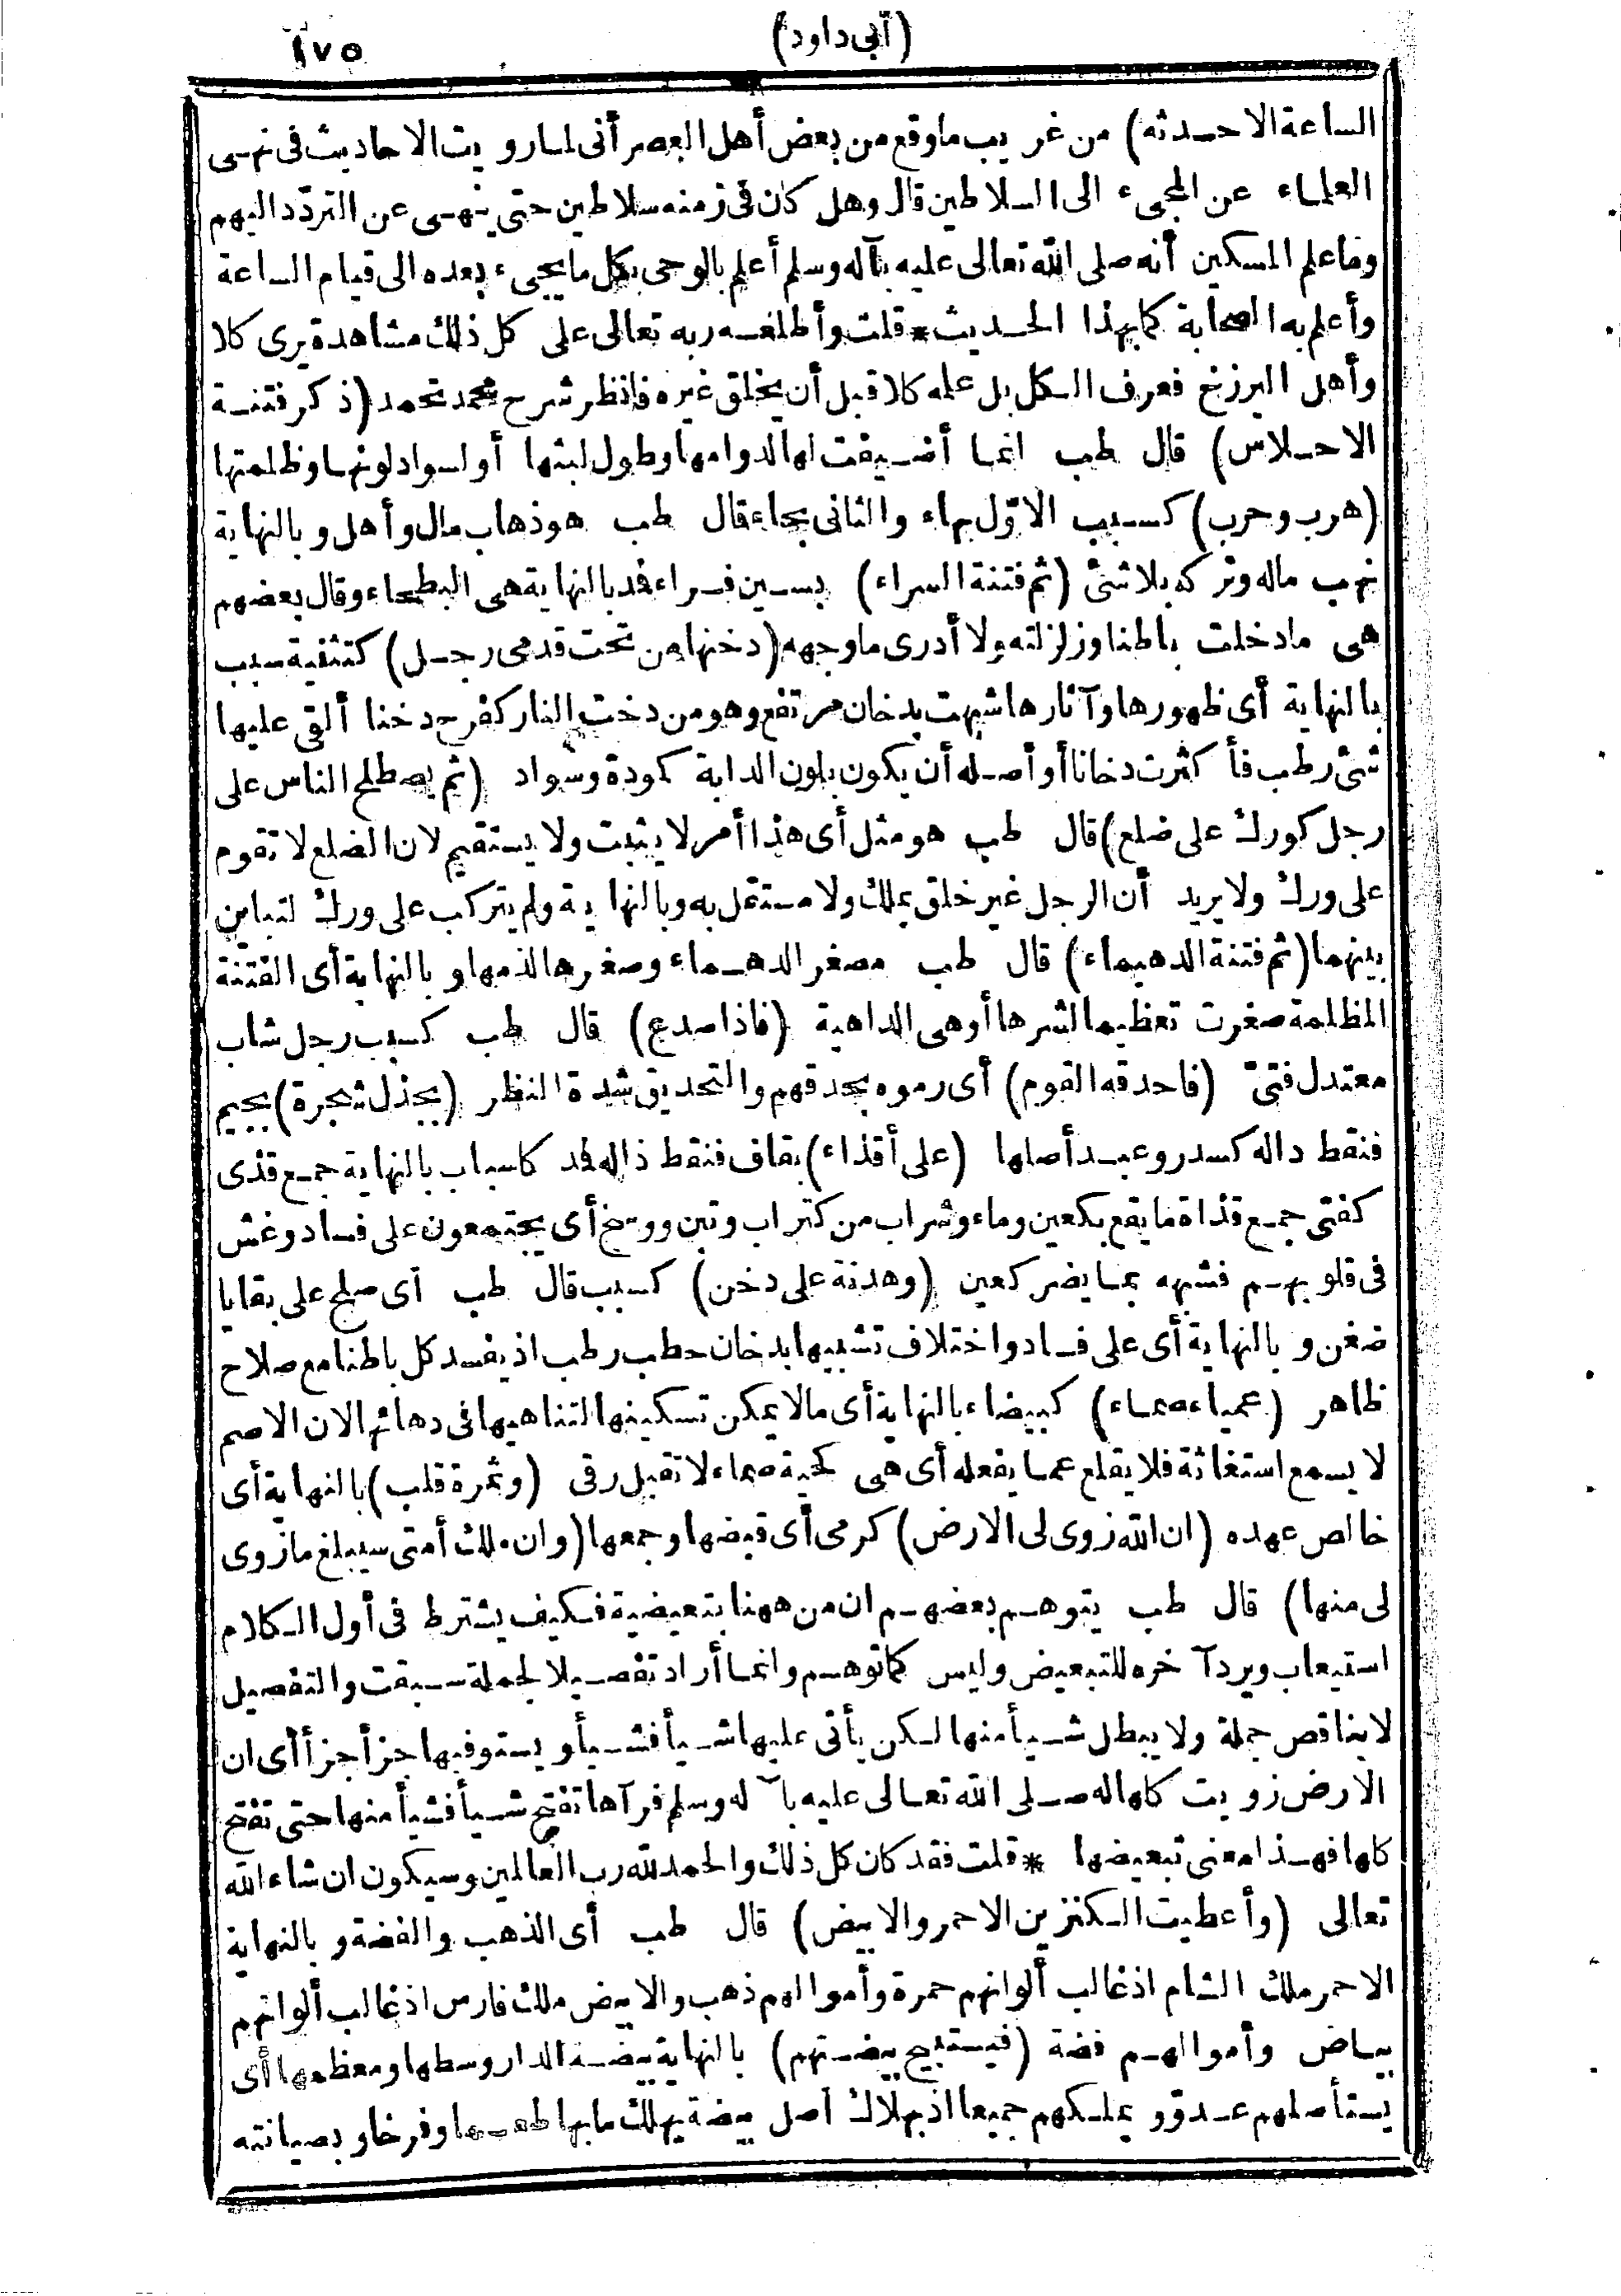 (أبى داود)
١٧٥
الساعة الا حدثه) من غريب ما وقع من بعض أهل العصر أنى لما رويت الاحاديث فى نهى
العلماء عن المجىء الى السلاطين قال وهل كان فى زمنه سلاطين حتى ينهى عن التردّد اليهم
وما علم المسكين أنه صلى الله تعالى عليه بآله وسلم أعلم بالوحى بكل ما يجىء بعده الى قيام الساعة
وأعلم به الصحابة كما بهذا الحديث * قلت وأطلعه ربه تعالى على كل ذلك مشاهدة يرى كلا
وأهل البرزخ فعرف الكل بل علمه كلا قبل أن يخلق غيره فانظر شرح محمد تحمد (ذكر فتنة
الاحلاس) قال طب انما أضيفت لها لدوامها وطول لبثها أو لسواد لونها وظلمتها
(هرب وحرب) كسبب الاوّل بهاء والثانى بحاء قال طب هو ذهاب مال وأهل وبالنهاية
نهب ماله وتركه بلا شئ (ثم فتنة السراء) بسين فراء فمد بالنهاية هى البطحاء وقال بعضهم
هى ما دخلت باطنا وزلزلته ولا أدرى ما وجهه (دخنها من تحت قدمى رجل) كتثنية سبب
بالنهاية أى ظهورها وآثارها شبهت بدخان مرتفع وهو من دخنت النار كفرح دخنا ألقى عليها
شئ رطب فأكثرت دخانا أو أصله أن يكون بلون الدابة كمودة وسواد (ثم يصطلح الناس على
رجل كورك على ضلع) قال طب هو مثل أى هذا أمر لا يثبت ولا يستقيم لان الضلع لا تقوم
على ورك ولا يريد أن الرجل غير خلق بملك ولا مستقل به وبالنهاية ولم يتركب على ورك لتباين
بينهما (ثم فتنة الدهيماء) قال طب مصغر الدهماء وصغرها لذمها وبالنهاية أى الفتنة
المظلمة صغرت تعظيما لشرها أو هى الداهية (فاذا صدع) قال طب كسبب رجل شاب
معتدل فتىّ (فاحدقه القوم) أى رموه بحدقهم والتحديق شدة النظر (بجذل شجرة) بجيم
فنقط داله كسدر وعبد أصلها (على أقذاء) بقاف فنقط ذاله فمد كاسباب بالنهاية جمع قذى
كفتى جمع قذاة ما يقع بكعين وماء وشراب من كتراب وتبن ووسخ أى يجتمعون على فساد وغش
فى قلوبهم فشبهه بما يضر كعين (وهدنة على دخن) كسبب قال طب أى صلح على بقايا
ضغن وبالنهاية أى على فساد واختلاف تشبيها بدخان حطب رطب اذ يفسد كل باطنا مع صلاح
ظاهر (عمياء صماء) كبيضاء بالنهاية أى ما لا يمكن تسكينها لتناهيها فى دهائها لان الاصم
لا يسمع استغاثة فلا يقلع عما يفعله أى هى كحية صماء لا تقبل رقى (وثمرة قلب) بالنهاية أى
خالص عهده (ان الله زوى لى الارض) كرمى أى قبضها وجمعها (وان ملك أمتى سيبلغ ما زوى
لى منها) قال طب يتوهم بعضهم ان من ههنا بتعيضية فكيف يشترط فى أول الكلام
استيعاب ويرد آخره للتبعيض وليس كما توهم وانما أراد تفصيلا لجملة سبقت والتفصيل
لا يناقص جملة ولا يبطل شيأ منها لكن يأتى عليها شيأ فشيأ ويستوفيها جزأ جزأ أى ان
الارض زويت كلها له صلى الله تعالى عليه بآله وسلم فرآها تفتح شيأ فشيأ منها حتى تفتح
كلها فهذا معنى تبعيضها * قلت فقد كان كل ذلك والحمد لله رب العالمين وسيكون ان شاء الله
تعالى (وأعطيت الكنزين الاحمر والابيض) قال طب أى الذهب والفضة وبالنهاية
الاحمر ملك الشام اذ غالب ألوانهم حمرة وأموالهم ذهب والابيض ملك فارس اذ غالب ألوانهم
بياض وأموالهم فضة (فيستبيح بيضتهم) بالنهاية بيضة الدار وسطها ومعظمها أى
يستأصلهم عدوّ ويملكهم جميعا اذ بهلاك أصل بيضة يهلك ما بها طعما وفرخا وبصيانته